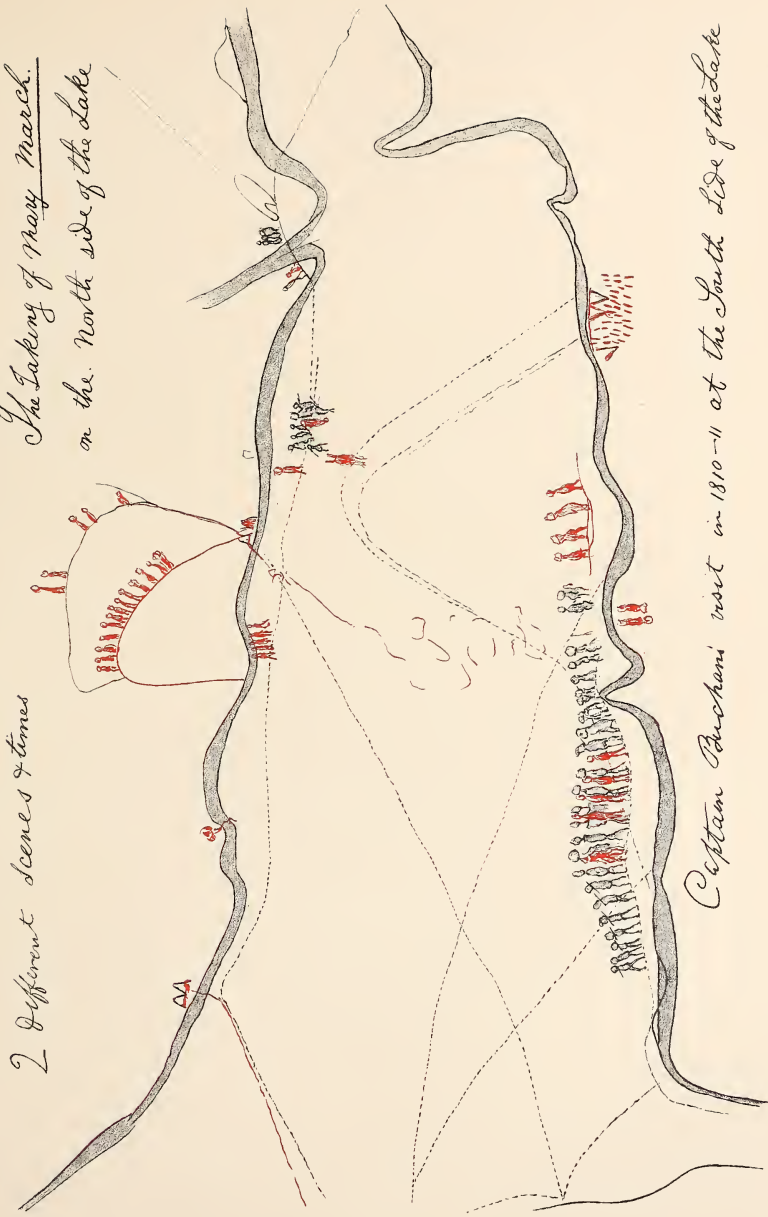 2 different Scenes & times
The Taking of Mary March.
on the. North side of the Lake
Captain Buchans visit in 1810-11 at the South Side of the Lake